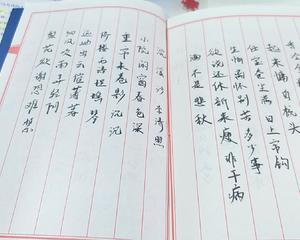 起来慵自梳头
任宝奁尘满日上帘钩
生怕离怀别苦多少事
欲说还休新来瘦非干病
酒不是悲秋
浣溪沙 李清照
小院闲窗春色深
重帘未卷影沉沉
倚楼无语理瑶琴
远岫出云催薄暮
细风吹雨弄轻阴
梨花欲谢恐难禁